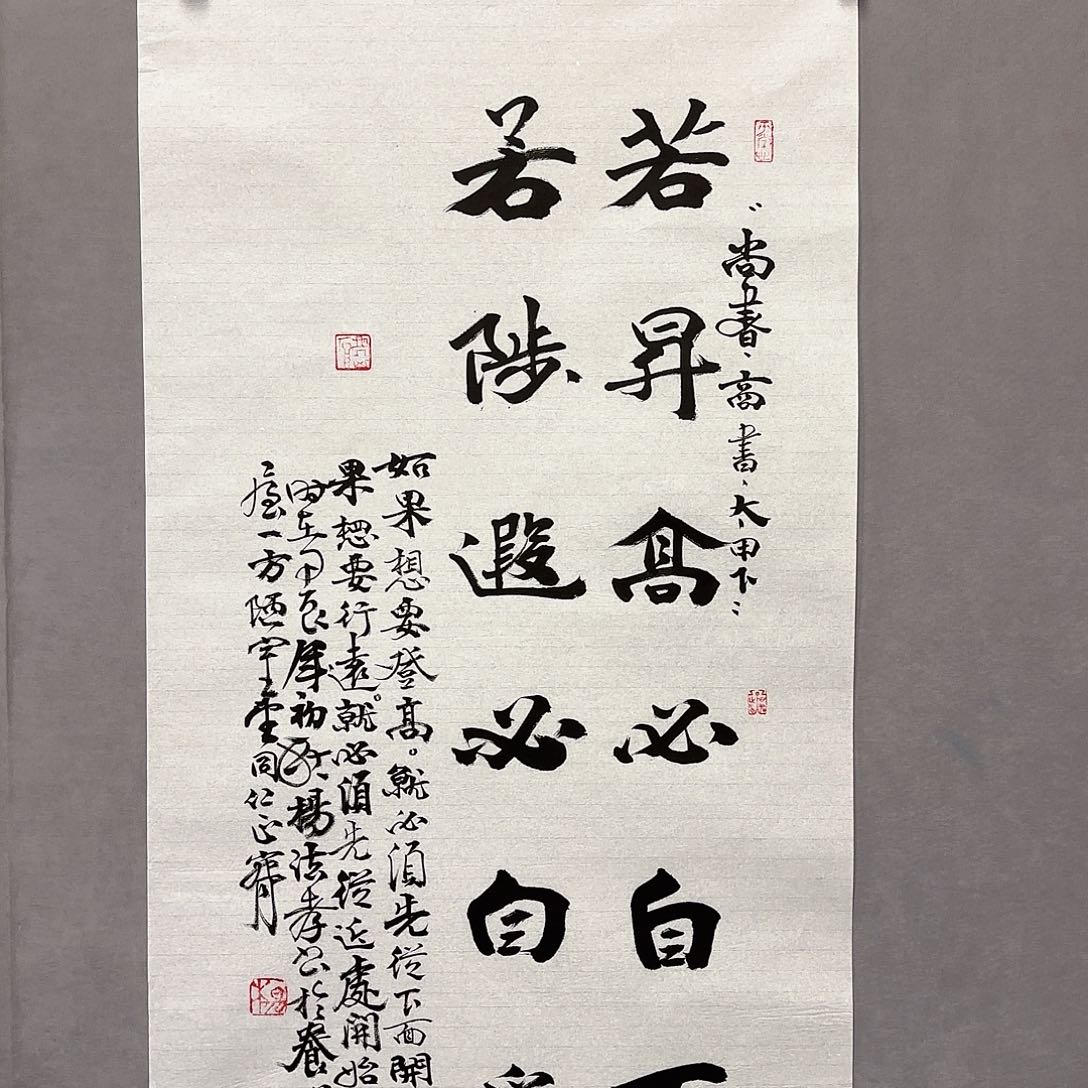 尚書·商書·太甲下:
若昇高必自下
若陟遐必自
如果想要登高。就必須先從下面開
果想要行遠。就必須先從近處開始
時在甲辰年初秋楊法孝書於養
一方陋室同仁正